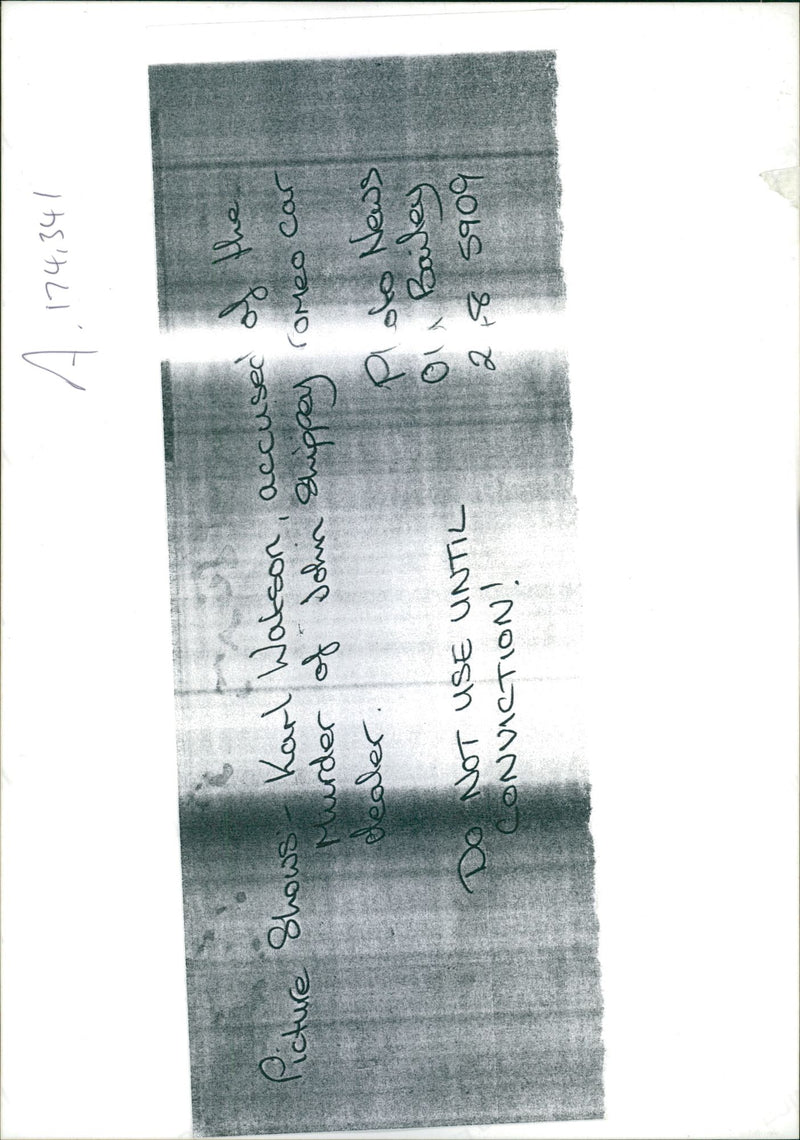 A. 174,341
Picture Shows:- Karl Watson, accused of the
Murder of John Shippey romeo car
dealer.
Photo News
Old Bailey
5909
DO NOT USE UNTIL
CONVICTION!